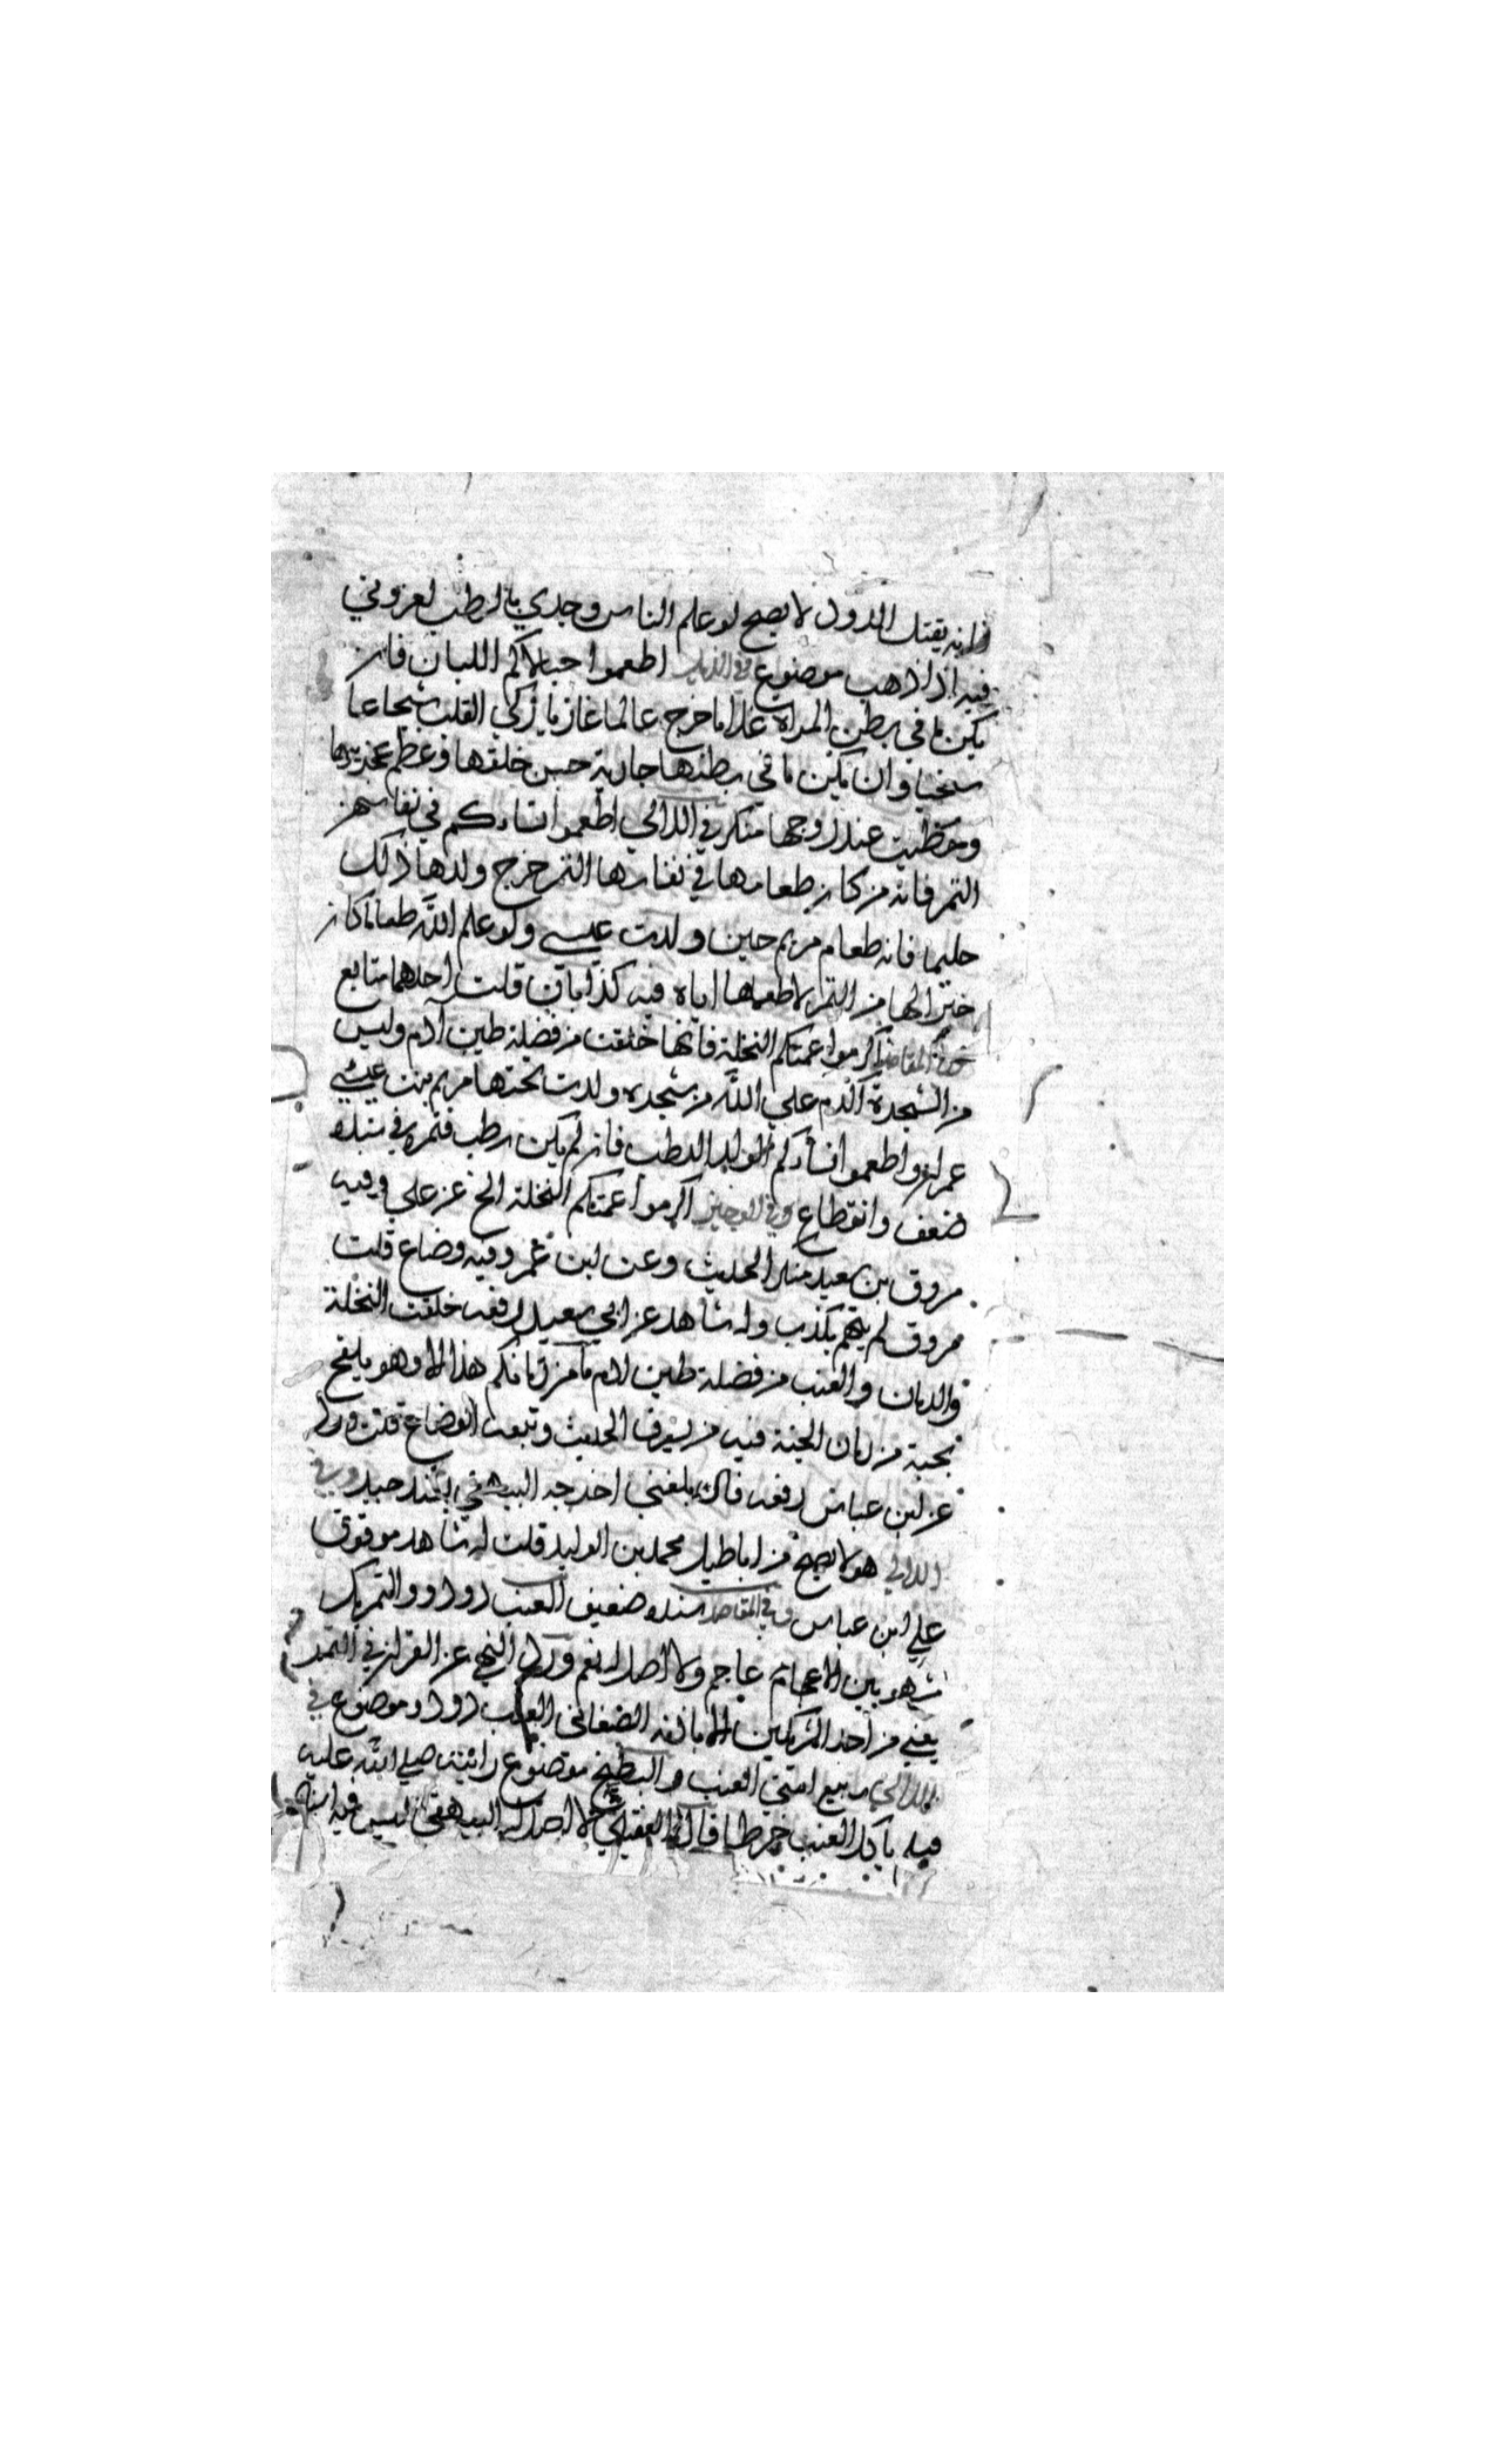 فانه يقتل الدود لا يصح لو علم الناس وجدي بالرطب لعزوني
فيه اذا ذهب موضوع في الذيل اطعموا حبالاكم اللبان فان
يكن ما في بطن المراة غلاما خرج عالما غازيا زكي القلب شجاعا
سخيا وان يكن ما في بطنها جارية حسن خلقها وعظم عجزيتها
وحظيت عند زوجها منكر في اللالي اطعموا نساءكم في نفاسهن
التمر فانه من كان طعامها في نفاسها التمر خرج ولدها ذلك
حليما فانه طعام مريم حين ولدت عيسى ولو علم الله طعاما كان
خيرا لها من التمر لاطعمها اياه فيه كذابان قلت احدهما متابع
في المقاصد اكرموا عمتكم النخلة فانها خلقت من فضلة طين ادم وليس
من الشجرة اكرم على الله من شجرة ولدت تحتها مريم بنت
عمران واطعموا نساءكم الولد الرطب فان لم يكن رطب فتمر في سنده
ضعف وانقطاع وفي الوجيز اكرموا عمتكم النخلة الخ عن علي وفيه
مسروق بن سعيد منكر الحديث وعن ابن عمر وفيه وضاع قلت
مسروق لم يتهم بكذب وله شاهد عن ابي سعيد رفعه خلقت النخلة
والرمان والعنب من فضلة طين ادم ما من رمانكم هذا الا وهو يلقح
بحبة من رمان الجنة فيه من يسرق الحديث وتبعه الوضاع قلت ورد
عن ابن عباس رفعه قال بلغني اخرجه البيهقي بسند جيد وفي
اللالي هو لا يصح من اباطيل محمد بن الوليد قلت له شاهد موقوف
على ابن عباس وفي المقاصد سنده ضعيف العنب دو دو والتمر يك
مشهور بين الاعاجم ولا اصل له نعم ورد النهي عن القران في التمر
يعني من احد الشريكين الا باذنه الصغاني العنب دو دو موضوع في
اللالي ربيع امتي العنب والبطيخ موضوع رايت صلى الله عليه
فيه ياكل العنب خرطا قال العقيلي لا اصل له البيهقي ليس فيه اسناد